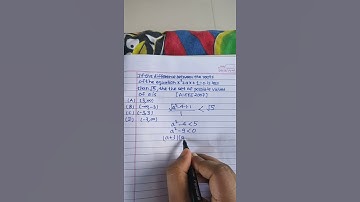 If the difference between the roots
of the equation x²+ax+1=0 is less
than √5, the the set of possible values
of a is [AIEEE 2007]
(A) (3,∞)
(B) (-∞,-3)
(C) (-3,3)
(D) (-3,∞)
√a²-4×1 / 1 < √5
a²-4<5
a²-9<0
(a+3)(a